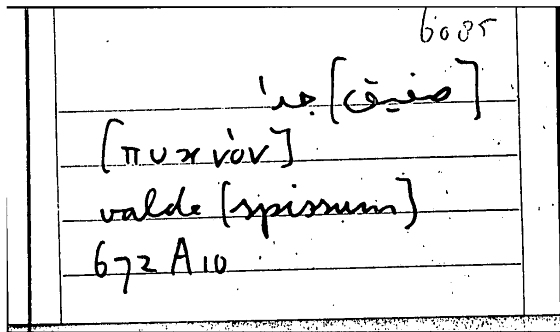 6085
[صفيق] جداً
[πυκνόν]
valde [spissum]
672 A 10